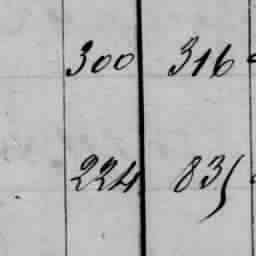 300 316
224 835